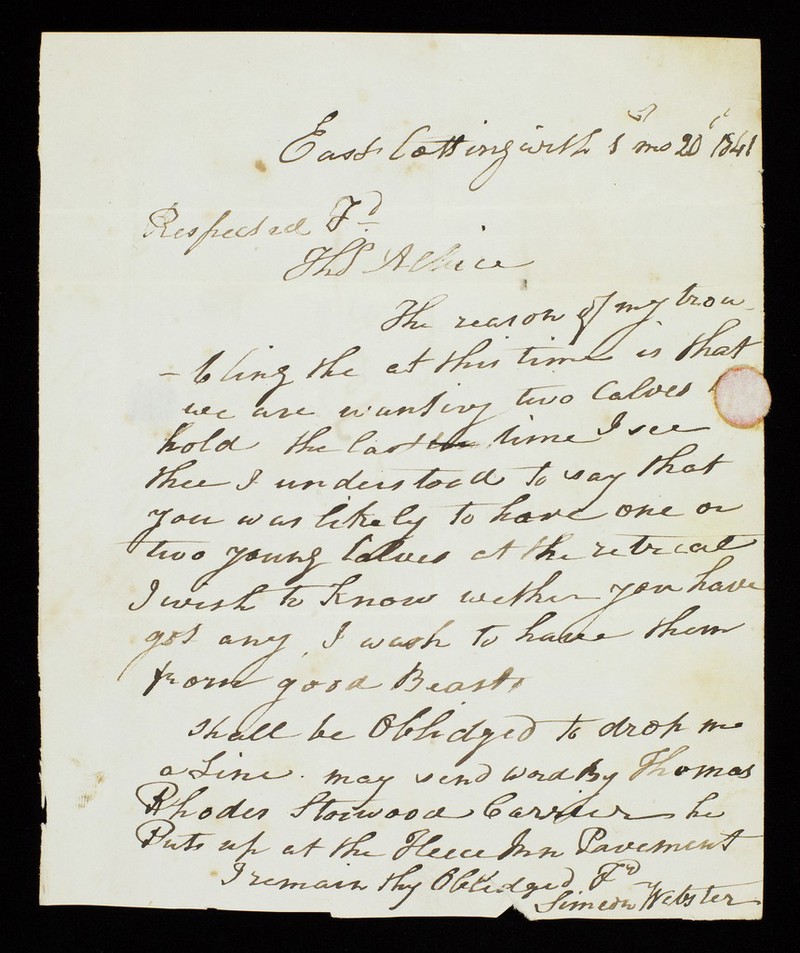 East Cottingwith 1st mo 20th 1841
Respected Fd
Thos Allice
The reason of my trou
-bling the at this time is that
we are wanting two Calves
hold the last time I see
thee I understood to say that
you was likely to have one or
two young Calves at the retreat
I wish to Know wether you have
got any, I wash to have them
from good Beasts
Shall be Oblidged to drop me
a Line. may send word By Thomas
Rhodes Storwood Carrier he
Puts up at the Fleece Inn Pavement
I remain thy Oblidged Fd
Simeon Webster